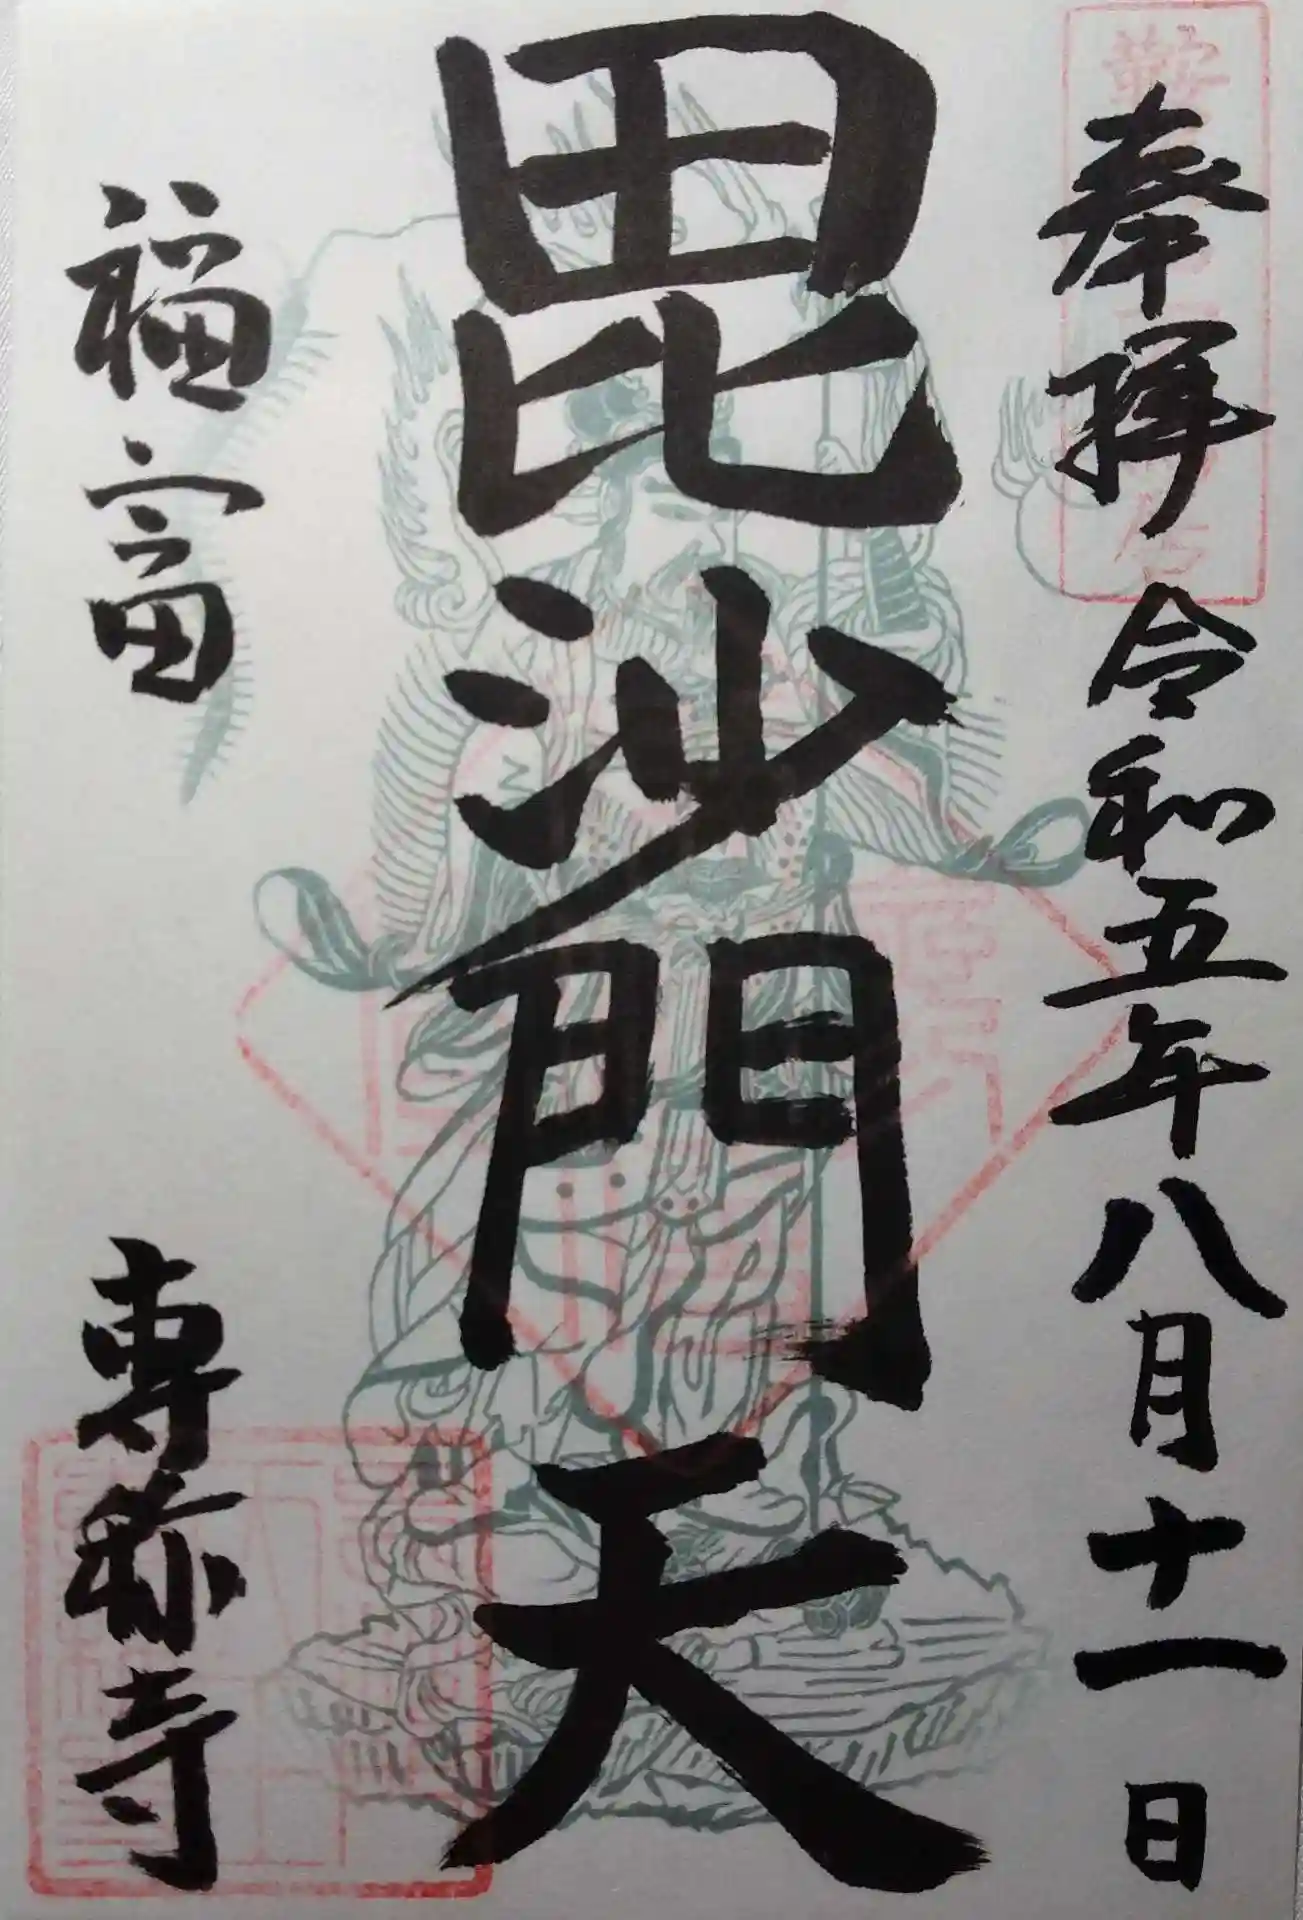 奉拝 令和五年八月十一日
毘沙門天
福富 専称寺